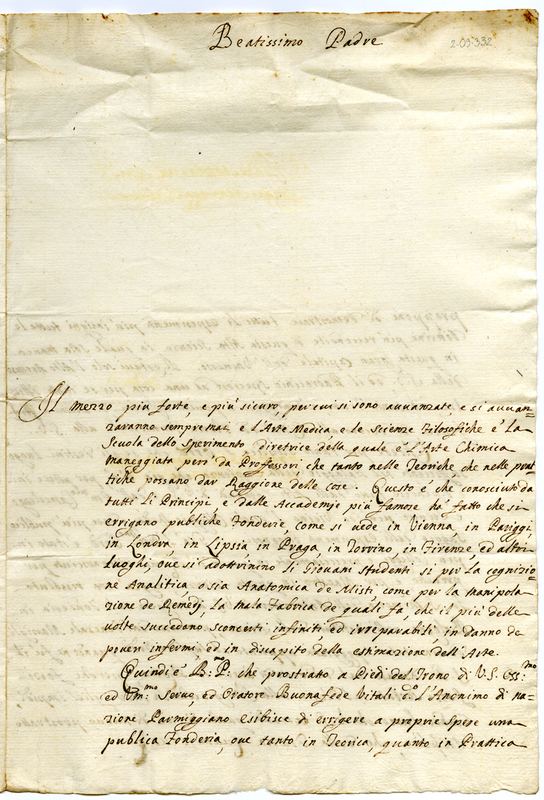 Beatissimo Padre
2.09.332
Il mezzo più forte, e più sicuro, per cui si sono avvanzate e si avvan=
zaranno sempremai e l'Arte Medica e le Scienze Filosofiche è la
Scuola dello Sperimento direttrice della quale è l'Arte Chimica
maneggiata però da Professori, che tanto nelle Teoriche che nelle prat
tiche possano dar Raggione delle cose. Questo è che conosciuto da
tutti li Principi e dalle Accademje più famose hà fatto che si
errigano publiche Fonderie, come si vede in Vienna, in Pariggi,
in Londra, in Lipsia in Praga, in Torrino, in Firenze, ed altri
Luoghi, ove si adottrinino li Giovani studenti si per la cognizio
ne Analitica o sia Anatomica de Misti come per la manipola
zione de Remedj, la mala Fabrica de quali fà, che il più delle
volte succedano sconcerti infiniti ed irreparabili in danno de
poveri infermi ed in discapito della estimazione dell'Arte.
Quindi è B.mo P.: che prostrato a Piedi del Trono di V.S.
ed Um.mo Servo, ed Oratore Buonafede Vitali d.o l'Anonimo di na=
zione Parmiggiano esibisce di errigere a proprie spese una
publica Fonderia, ove tanto in Teorica, quanto in Prattica